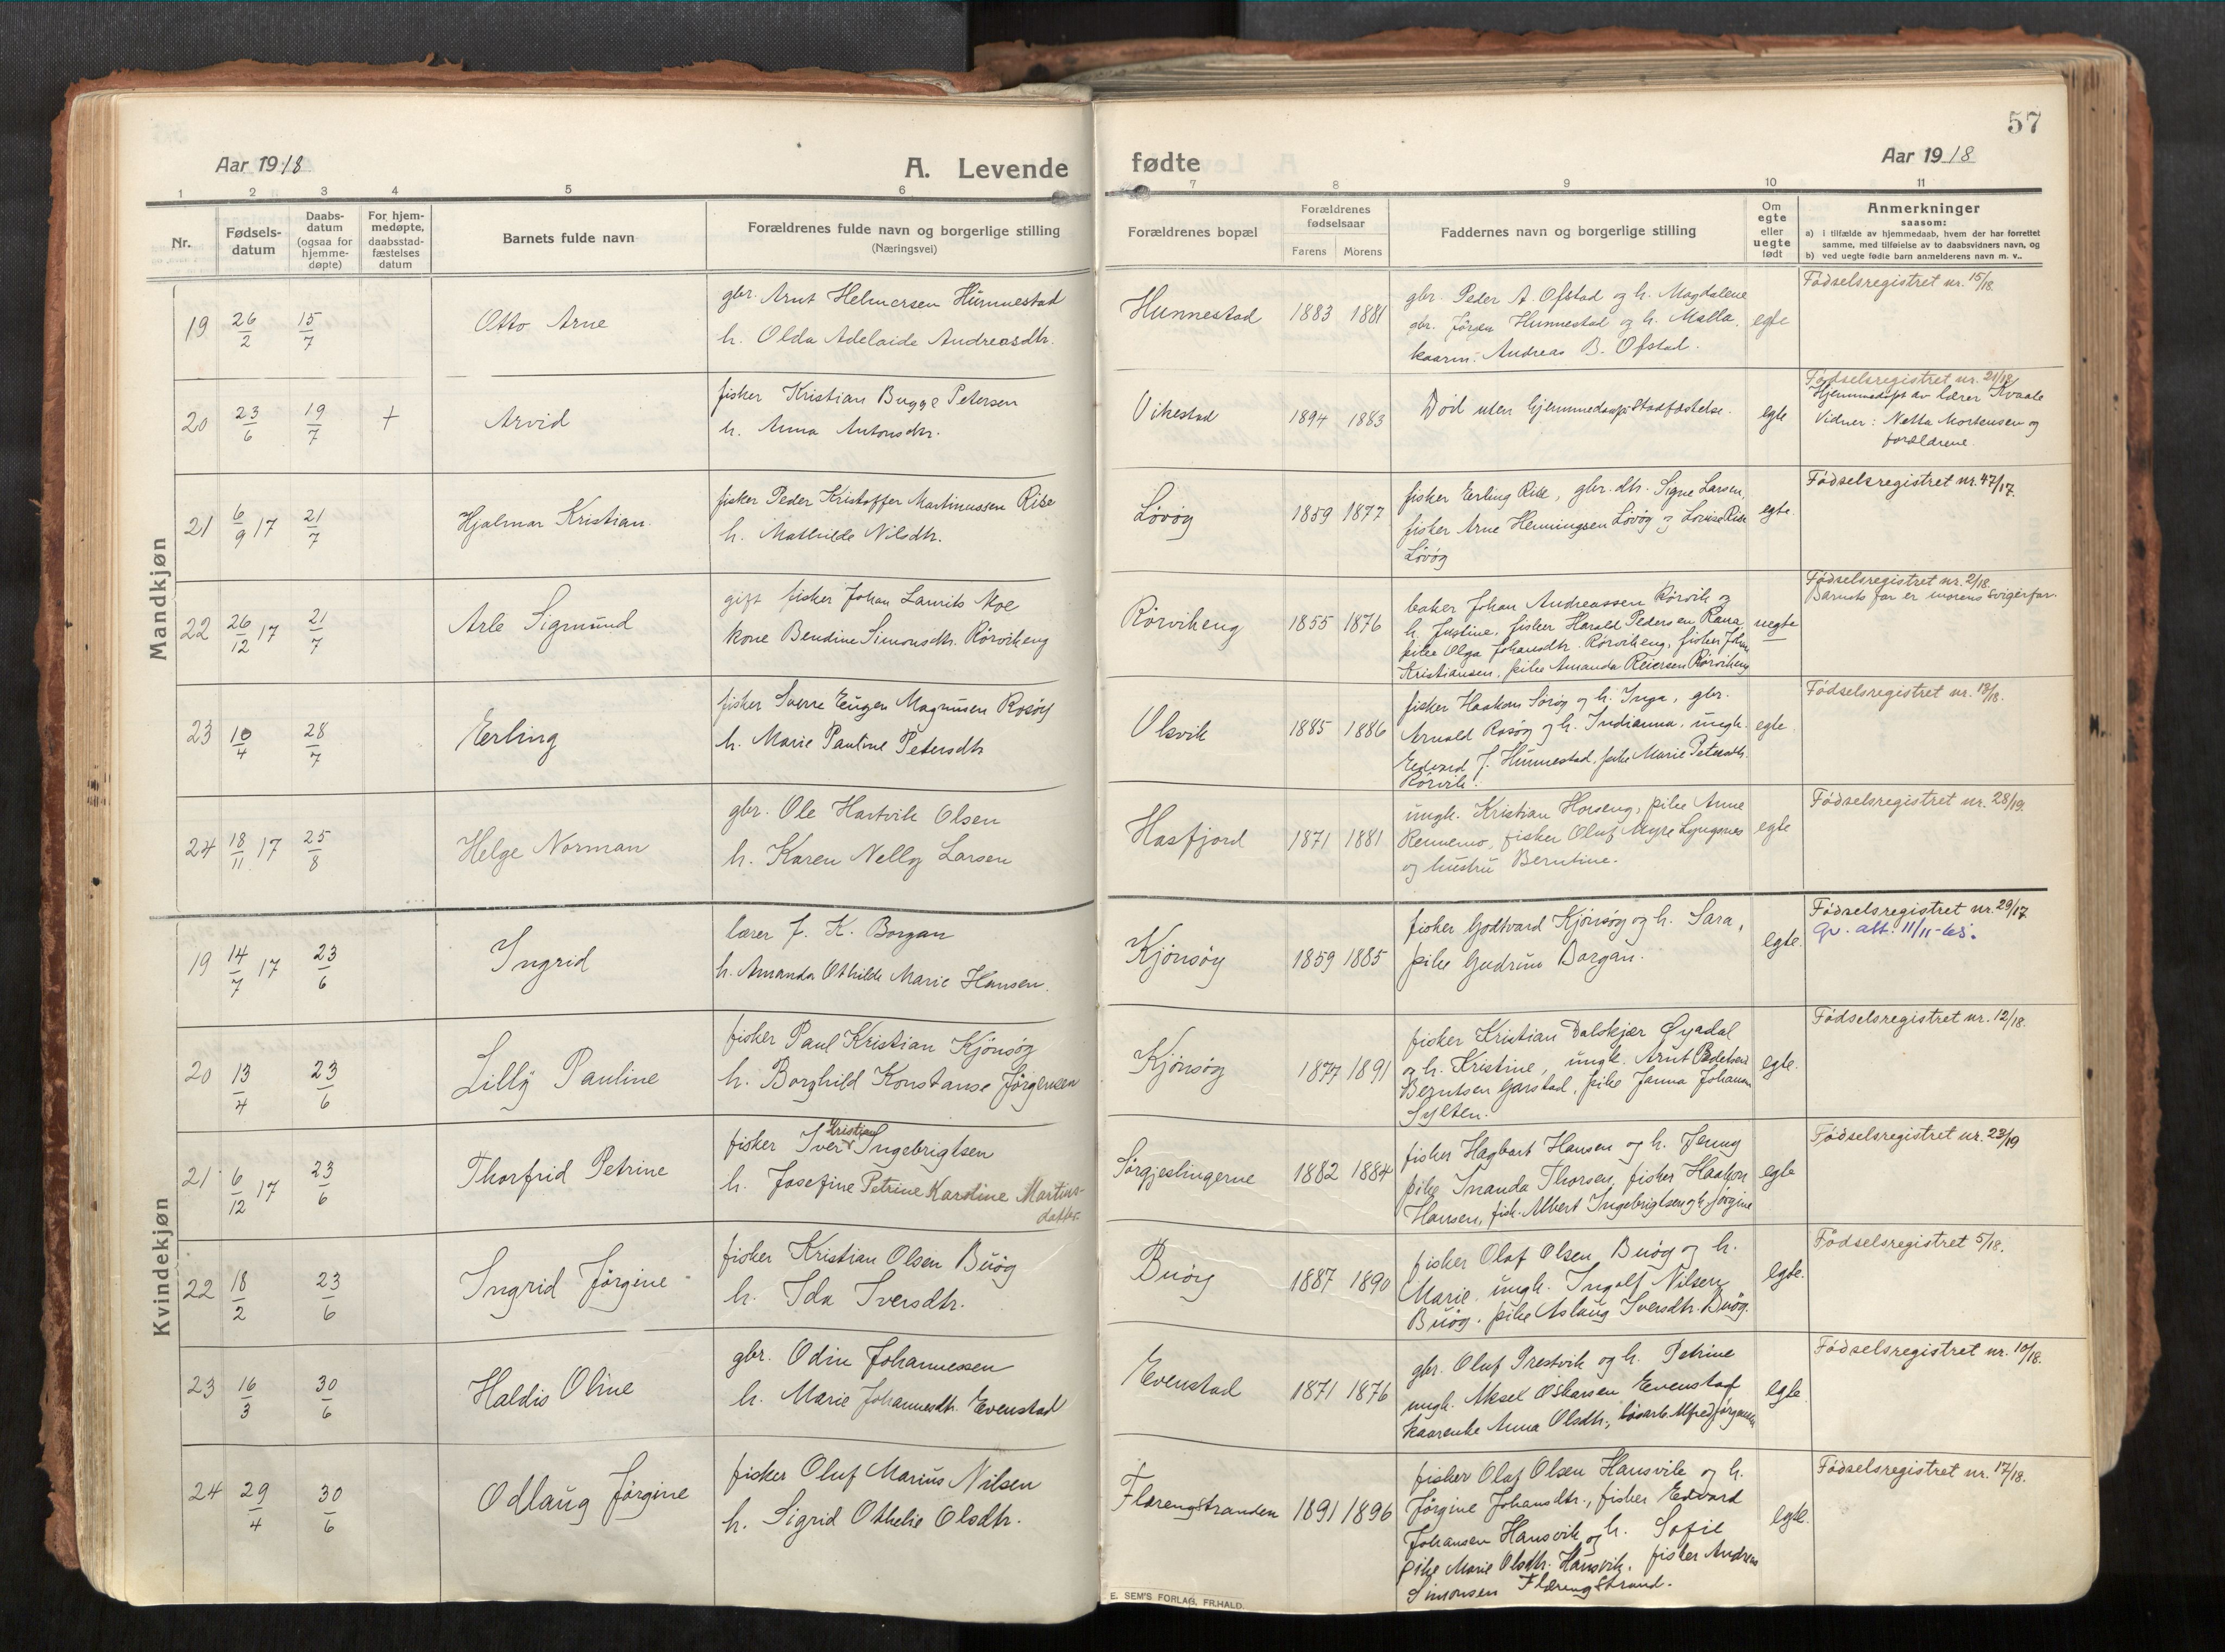 57
Aar 1918
A. Levende fødte
Aar 1918
1 2 3 4 5 6 7 8 9 10 11
Nr.
Fødsels-
datum
Daabs-
datum
(ogsaa for
hjemme-
døpte)
For hjem-
medøpte,
daabsstad-
fæstelses
datum
Barnets fulde navn
Forældrenes fulde navn og borgerlige stilling
(Næringsvei)
Forældrenes bopæl
Forældrenes
fødselsaar
Farens Morens
Faddernes navn og borgerlige stilling
Om
egte
eller
uegte
født
Anmerkninger
saasom:
a) i tilfælde av hjemmedaab, hvem der har forrettet
samme, med tilføielse av to daabsvidners navn, og
b) ved uegte fødte barn anmelderens navn m. v..
Mandkjøn
19 26/2 15/7 Otto Arne
gbr. Arnt Helmersen Hunnestad
h. Olda Adelaide Andreasdtr.
Hunnestad 1883 1881
gbr. Peder A. Ofstad og h. Magdalene
gbr. Jörgen Hunnestad og h. Malla,
kaarm. Andreas B. Ofstad.
egte
Födselsregistret nr. 15/18.
20 23/6 19/7 + Arvid
fisker Kristian Bugge Petersen
h. Anna Antonsdtr.
Vikestad 1894 1883
Död uten hjemmedaaps Stadfæstelse.
egte
Födselsregistret nr. 21/18
Hjemmedöpt av lærer Kvaale
Vidner: Netta Mortensen og
forældrene.
21 6/9 17 21/7 Hjalmar Kristian
fisker Peder Kristoffer Martinussen Rise
h. Mathilde Nilsdtr.
Lövöy 1859 1877
fisker Erling Rise, gbr. dtr. Signe Larsen,
fisker Arne Henningsen Lövöy og Lovise Rise
Lövöy
egte.
Födselsregistret nr. 47/17.
22 26/12 17 21/7 Arle Sigmund
gift fisker Johan Laurits Moe
kone Bendine Simonsdtr. Rörvikeng
Rörvikeng 1855 1876
baker Johan Andreassen Rörvik og
h. Justine, fisker Harald Pedersen Rana,
pike Olga Johansdtr. Rörvikeng, fisker John
Kristiansen, pike Amanda Reiersen Rörvikeng
uegte
Födselsregistret nr. 2/18.
Barnets far er morens svigerfar.
23 10/4 28/7 Erling
fisker Sverre Eugen Magnusen Rosöy
h. Marie Pauline Petersdtr
Olsvik 1885 1886
fisker Haakon Söröy og h. Inga, gbr.
Arnold Rosöy og h. Indianna, ungk.
Edvard J. Hunnestad, pike Marie Petersdtr.
Rörvik.
egte.
Födselsregistret nr. 18/18.
24 18/11 17 25/8 Helge Norman
gbr. Ole Hartvik Olsen
h. Karen Nelly Larsen
Hasfjord 1871 1881
ungk. Kristian Horseng, pike Anne
Rennemo, fisker Oluf Myre Lyngsnes
og hustru Berntine.
egte
Födselsregistret nr. 28/19.
Kvindekjøn
19 14/7 17 23/6 Ingrid
lærer J. K. Borgan
h. Amanda Othilde Marie Hansen.
Kjönsöy 1859 1885
fisker Godtvard Kjönsöy og h. Sara,
pike Gudrun Borgan.
egte.
Födselsregistret nr. 29/17
av. att. 11/11-65.
20 13/4 23/6 Lilly Pauline
fisker Paul Kristian Kjönsöy
h. Borghild Konstanse Jörgensen
Kjönsöy 1877 1891
fisker Kristian Dalskjær Øyadal
og h. Kristine, ungk. Arnt Pedersen
Berntsen Garstad, pike Janna Johansen
Sylten.
egte.
Födselsregistret nr. 12/18.
21 6/12 17 23/6 Thorfrid Petrine
fisker Iver Kristian Ingebrigtsen
h. Josefine Petrine Karoline Martins-
datter.
Sörgjeslingerne 1882 1884
fisker Hagbart Hansen og h. Jenny
pike Inanda Thorsen, fisker Haakon
Hansen, fisk. Albert Ingebrigtsen og h. Jörgine
egte
Födselsregistret nr. 23/19
22 18/2 23/6 Ingrid Jörgine
fisker Kristian Olsen Buöy
h. Ida Iversdtr.
Buöy 1887 1890
fisker Olaf Olsen Buöy og h.
Marie, ungk. Ingolf Nilsen,
Buöy, pike Aslaug Iversdtr. Buöy.
egte.
Födselsregistret 5/18.
23 16/3 30/6 Haldis Oline
gbr. Odin Johannessen
h. Marie Johannesdtr. Evenstad
Evenstad 1871 1876
gbr. Oluf Prestvik og h. Petrine
ungk. Aksel Oskarsen Evenstad,
kaarenke Anna Olsdtr., lösarb. Alfred Jörgensen
egte.
Födselsregistret nr. 10/18.
24 29/4 30/6 Odlaug Jörgine
fisker Oluf Marius Nilsen
h. Sigrid Othelie Olsdtr.
Flærengstranden 1891 1896
fisker Olaf Olsen Hansvik og h.
Jörgine Johansdtr., fisker Edvard
Johansen Hansvik og h. Sofie
pike Marie Olsdtr. Hansvik, fisker Andreas
Simonsen Flærengstrand.
egte.
Födselsregistret nr. 17/18.
E. SEM'S FORLAG, FR.HALD.